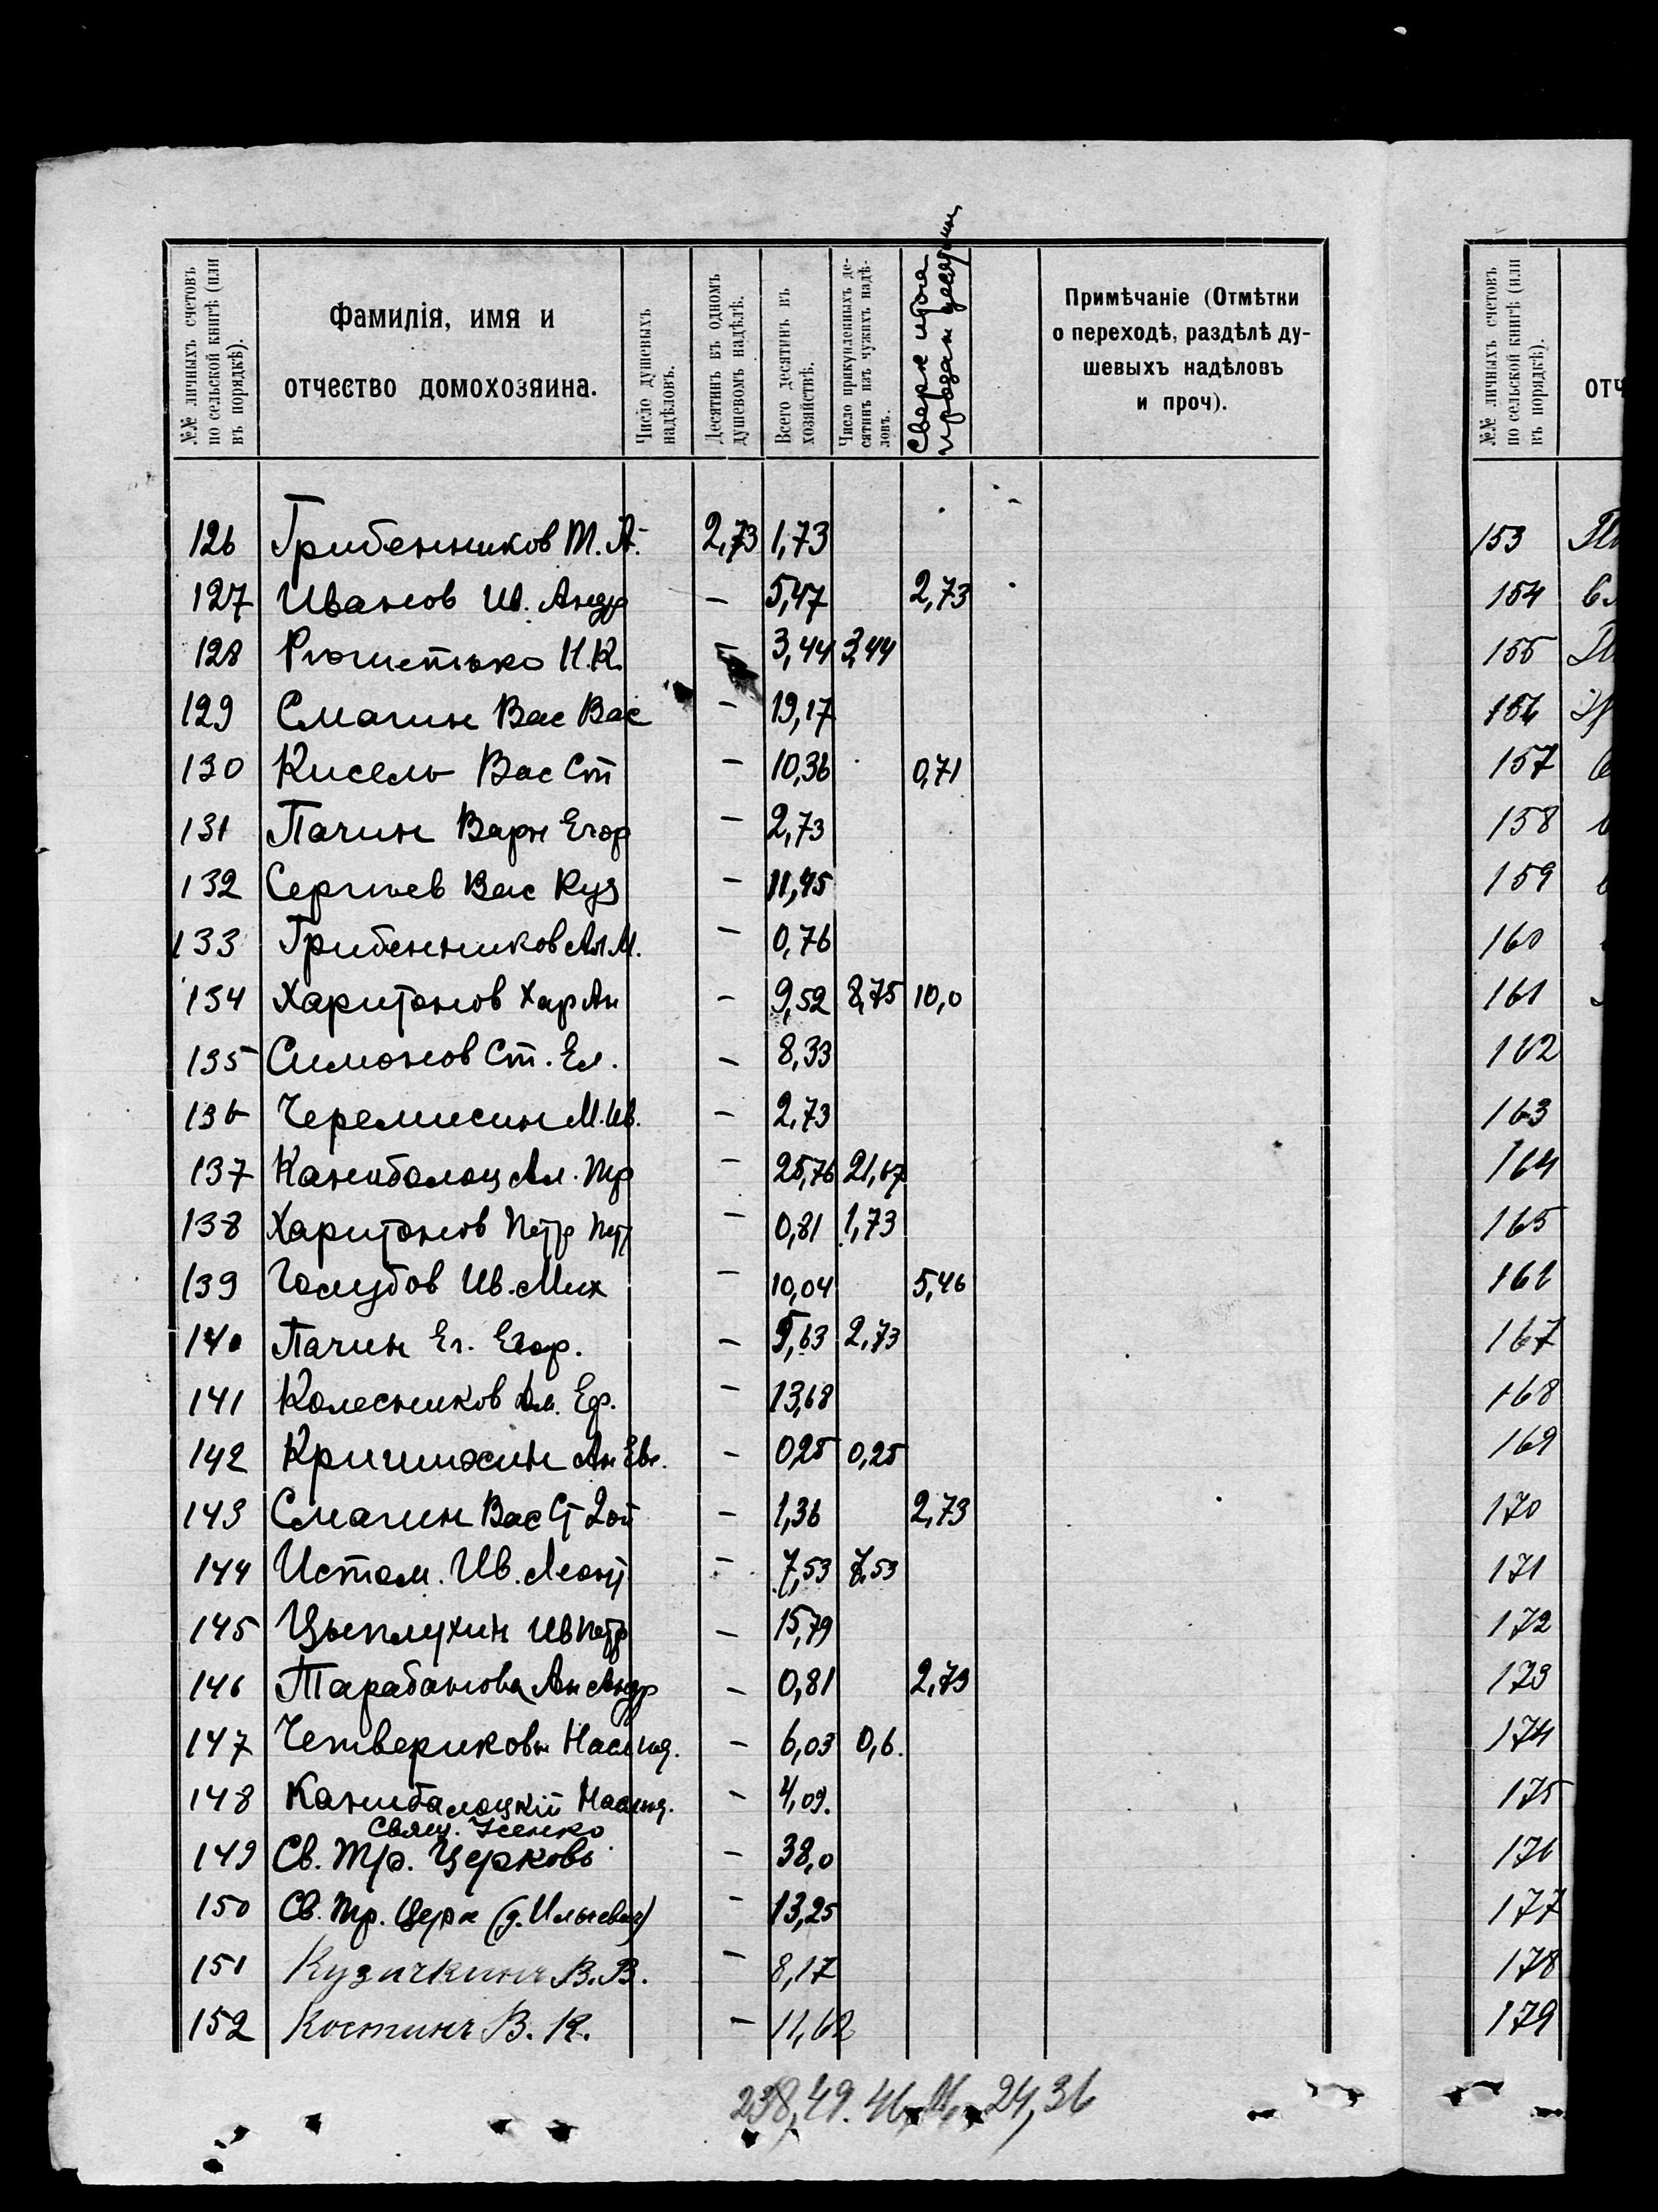 №№ личныхъ счетовъ по сельской книгѣ (или въ порядкѣ).
Фамилія, имя и отчество домохозяина.
Число душевыхъ надѣловъ.
Десятинъ въ одномъ душевомъ надѣлѣ.
Всего десятинъ въ хозяйствѣ.
Число прикупленныхъ десятинъ изъ чужихъ надѣловъ.
Сверх итога продан десятин
Примѣчаніе (Отмѣтки о переходѣ, раздѣлѣ душевыхъ надѣловъ и проч).
126 Грибенников Т. А. 2,73 1,73
127 Иванов Ив. Андр — 5,47 2,73
128 И.К. — 3,44 3,44
129 Смагин Вас Вас — 19,17
130 Кисель Вас Ст — 10,36 0,71
131 Пачин Варн Егор — 2,73
132 Сергеев Вас Куз — 11,45
133 Грибенников Ал М. — 0,76
134 Харитонов Хар Ан — 9,52 8,75 10,0
135 Симонов Ст. Ел. — 8,33
136 Черемисин М. Ив. — 2,73
137 Канибалоц Ал. Тр — 25,76 21,67
138 Харитонов Петр Петр — 0,81 1,73
139 Голубов Ив. Мих — 10,04 5,46
140 Пачин Ег. Егор. — 5,63 2,73
141 Колесников Ем. Еф. — 13,68
142 Ан Евг. — 0,25 0,25
143 Смагин Вас Ст 2ой — 1,36 2,73
144 Истом. Ив. Леонт — 7,53 7,53
145 Цыплухин Ив Петр — 15,79
146 Тарабанова Ан Андр — 0,81 2,73
147 Четвериковы Наслед. — 6,03 0,6.
148 Канибалоцкій Наслед. — 4,09.
Свящ.
149 Св. Тр. Церковь — 38,0
150 Св. Тр. Церк — 13,25
151 Кузичкинъ В. В. — 8,17
152 Костинъ В. К. — 11,62
238,49. 24,36
№№ личныхъ счетовъ по сельской книгѣ (или въ порядкѣ).
отч
153
154
155
156
157
158
159
160
161
162
163
164
165
166
167
168
169
170
171
172
173
174
175
176
177
178
179